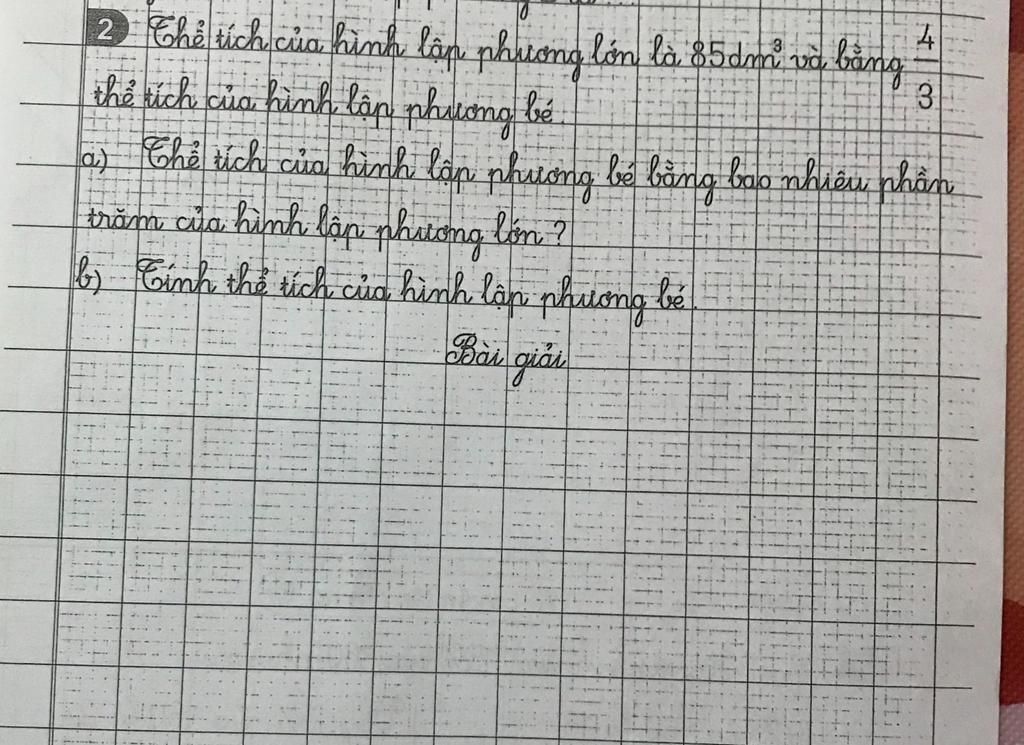 2 Thể tích của hình lập phương lớn là 85dm³ và bằng 4/3
thể tích của hình lập phương bé.
a) Thể tích của hình lập phương bé bằng bao nhiêu phần
trăm của hình lập phương lớn?
b) Tính thể tích của hình lập phương bé.
Bài giải